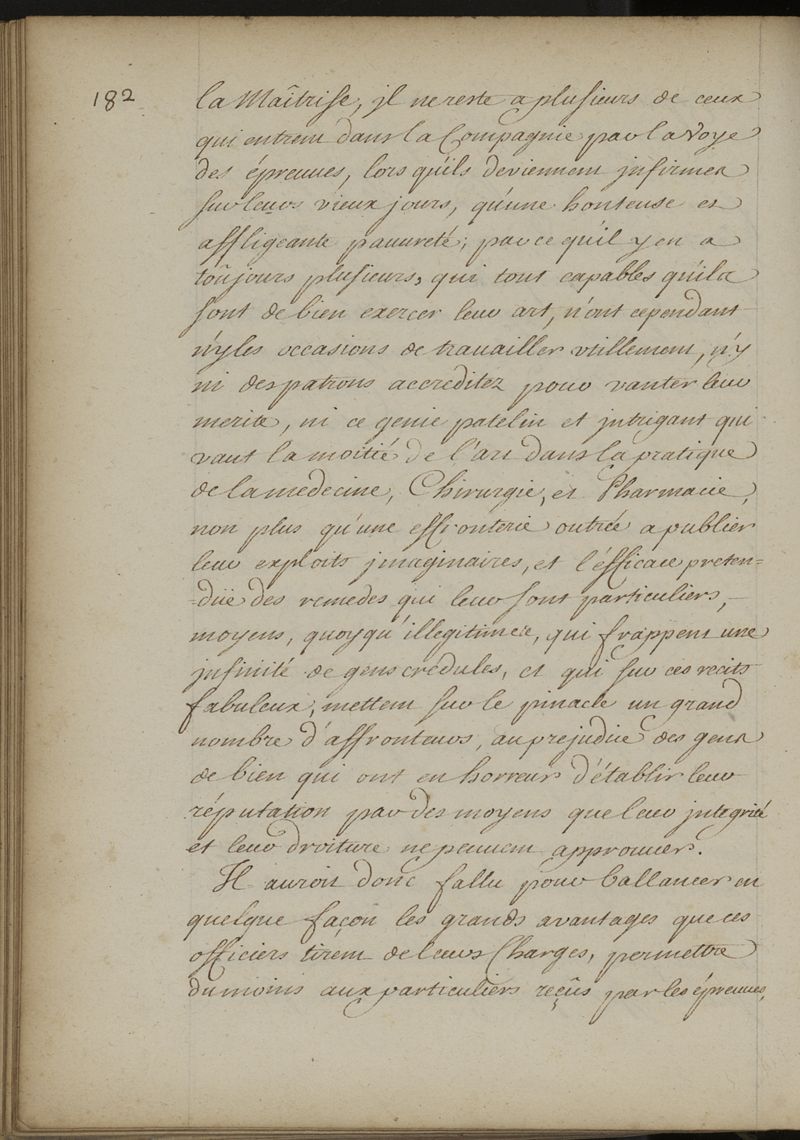 182
la Maîtrise, jl ne reste a plusieurs de ceux
qui entrent dans la Compagnie par la Voye
des épreuues, lors qu'ils deviennent jnfirmes
sur leurs vieux jours, qu'une honteuse et
affligeante pauureté; parce qu'il y en a
toûjours plusieurs, qui tout capables qu'ils
sont de bien exercer leur art, n'ont cependant
n'y les occasions de trauailler vtillement, n'y
ni des patrons accreditez pour vanter leur
merite, ni ce genie patelin et jntrigant qui
vaut la moitié de l'art dans la pratique
de la medecine, Chirurgie, et Pharmacie,
non plus qu'une effronterie outrée a publier
leur exploits jmaginaires, et l'éfficace preten=
=düe des remedes qui leur sont particuliers,
moyens, quoyqu'illegitimes, qui frappent une
jnfinité de gens credules, et qui sur ces recits
fabuleux, mettent sur le pinacle un grand
nombre d'affronteurs, au prejudice des gens
de bien qui ont en horreur d'établir leur
réputation par des moyens que leur jntegrité
et leur droiture ne peuuent approuuer.
Il auroit donc fallu pour ballancer en
quelque façon les grands avantages que ces
officiers tirent de leurs Charges, permettre
du moins aux particuliers reçûs par les épreuues,